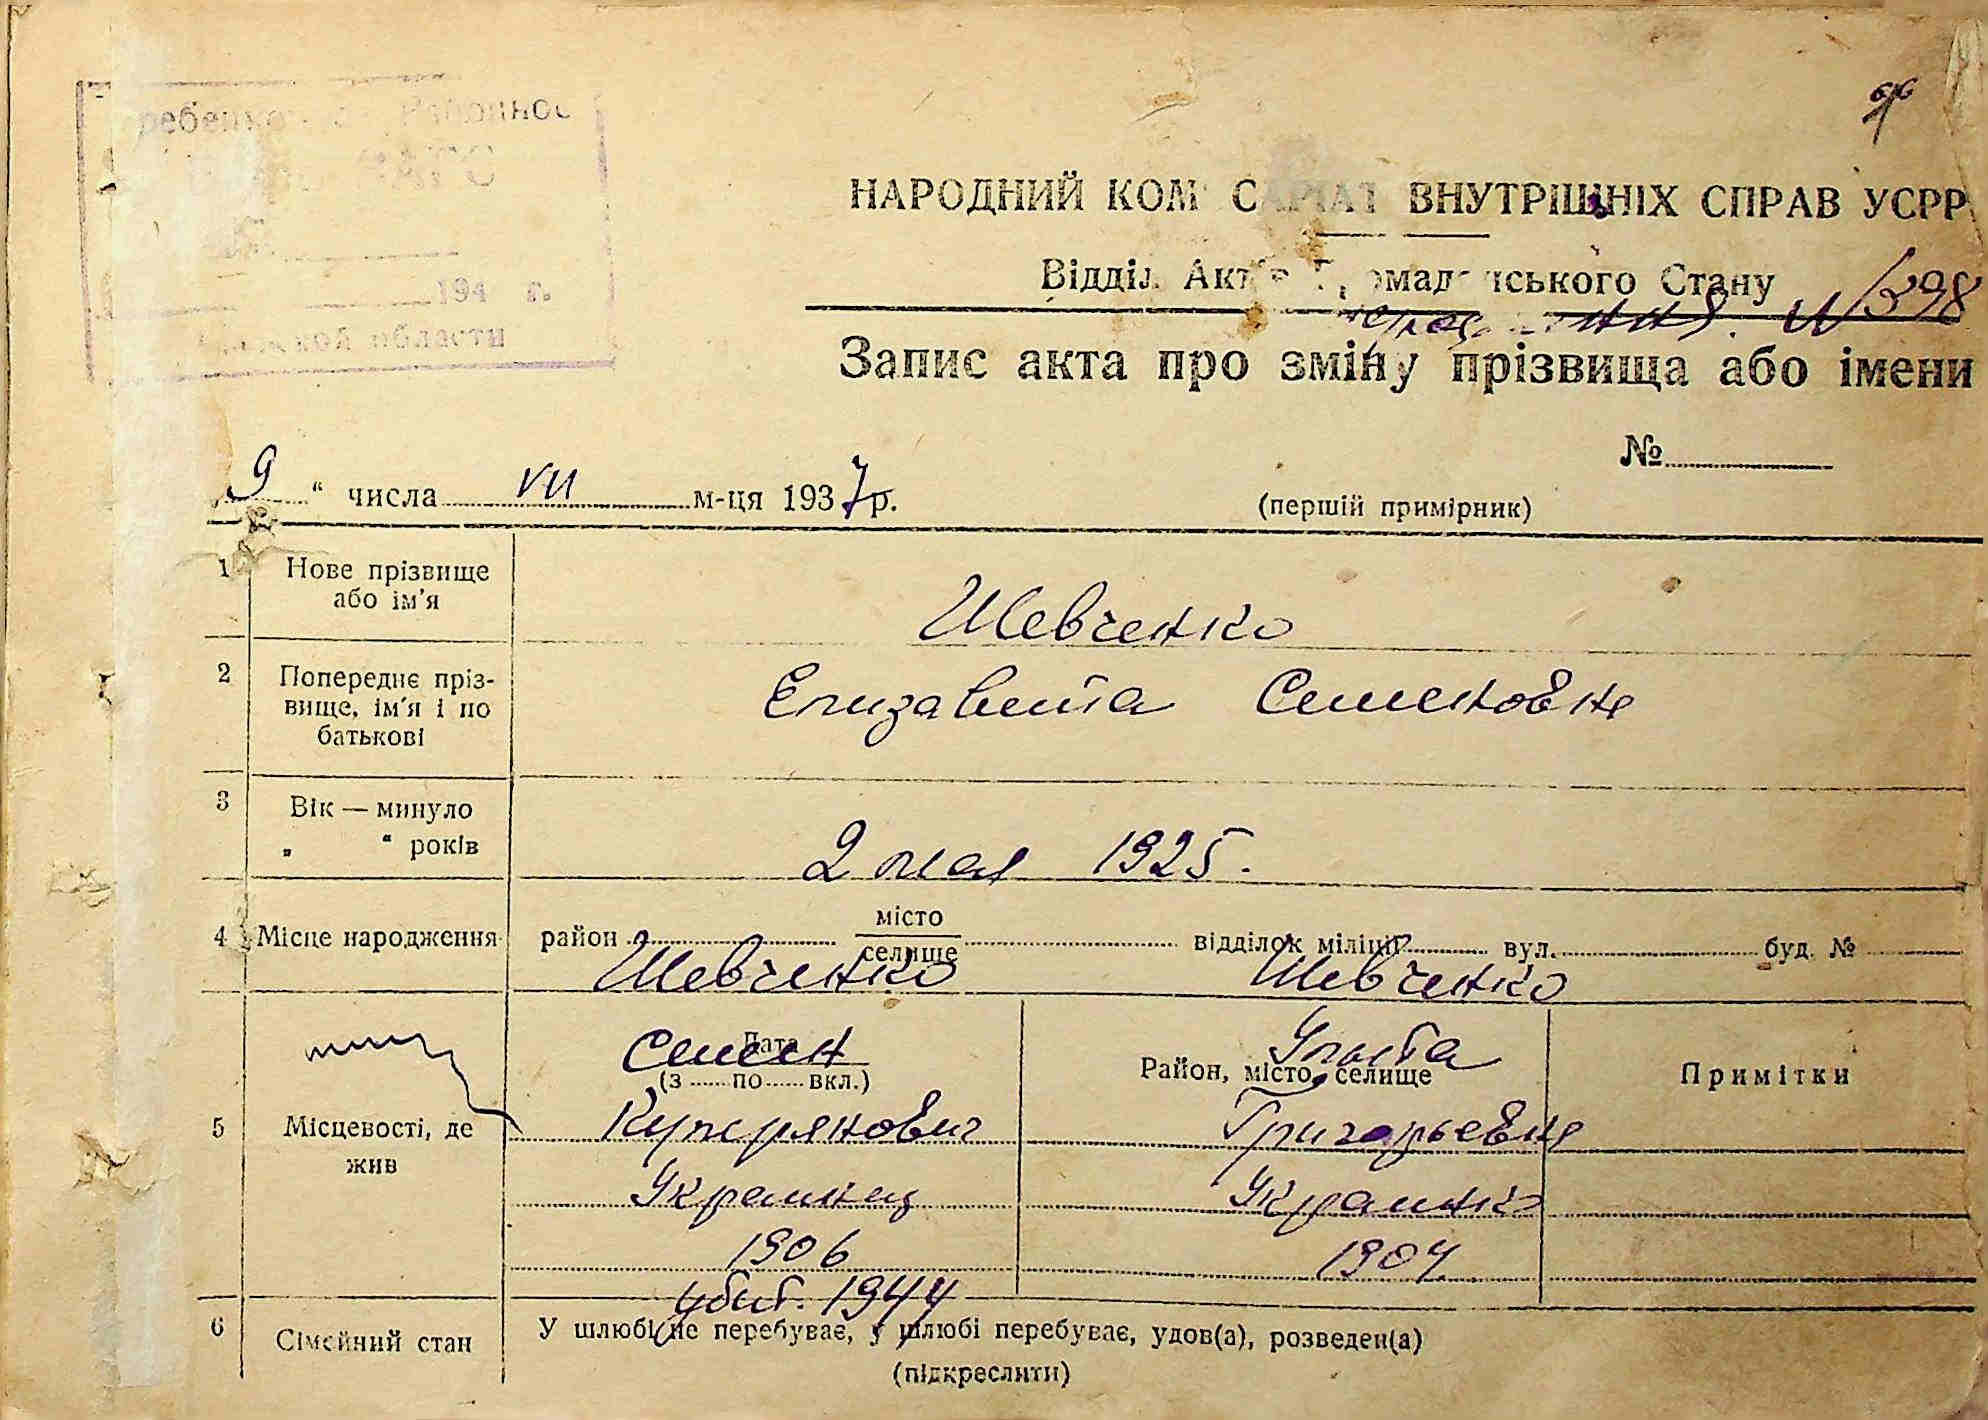 194 г.
области
66
НАРОДНИЙ КОМ САРІАТ ВНУТРІШНІХ СПРАВ УСРР
Відділ Актів Громадянського Стану
N 398
Запис акта про зміну прізвища або імени
№
9 " числа VII м-ця 1937 р.
(першій примірник)
1 Нове прізвище або ім'я
Шевченко
2 Попереднє пріз-
вище, ім'я і по
батькові
Елизавета Семеновна
3 Вік — минуло
„ “ років
2 мая 1925.
4 Місце народження район місто селище відділок міліції вул. буд. №
Шевченко Шевченко
Семен Ульта
Дата
(з ...... по ...... вкл.) Район, місто, селище Примітки
5 Місцевості, де жив
Куприянович Григорьевна
Украинец Украинка
1906 1904
убит. 1944
6 Сімейний стан У шлюбі не перебуває, у шлюбі перебуває, удов(а), розведен(а)
(підкреслити)